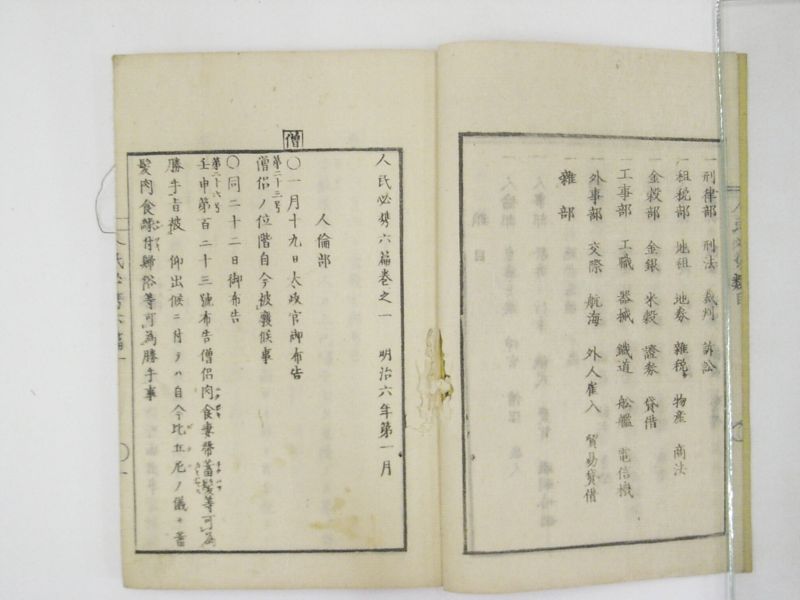 一刑律部 刑法 裁判 訴訟
一租税部 地租 地券 雜税 物産 商法
一金穀部 金銀 米穀 證券 貸借
一工事部 工職 器械 鐵道 舩艦 電信機
一外事部 交際 航海 外人雇入 貿易貸借
一雜部
人民必携六篇巻之一 明治六年第一月
人倫部
僧
〇一月十九日太政官御布告
第二十二号
僧侶ノ位階自今被廢候事
〇同二十二日御布告
第二十六号
壬申第百二十三號布告僧侶肉食妻帶蓄髪等可為
勝手旨被 仰出候ニ付テハ自今比丘尼ノ儀モ蓄
髪肉食縁付歸俗等可為勝手事